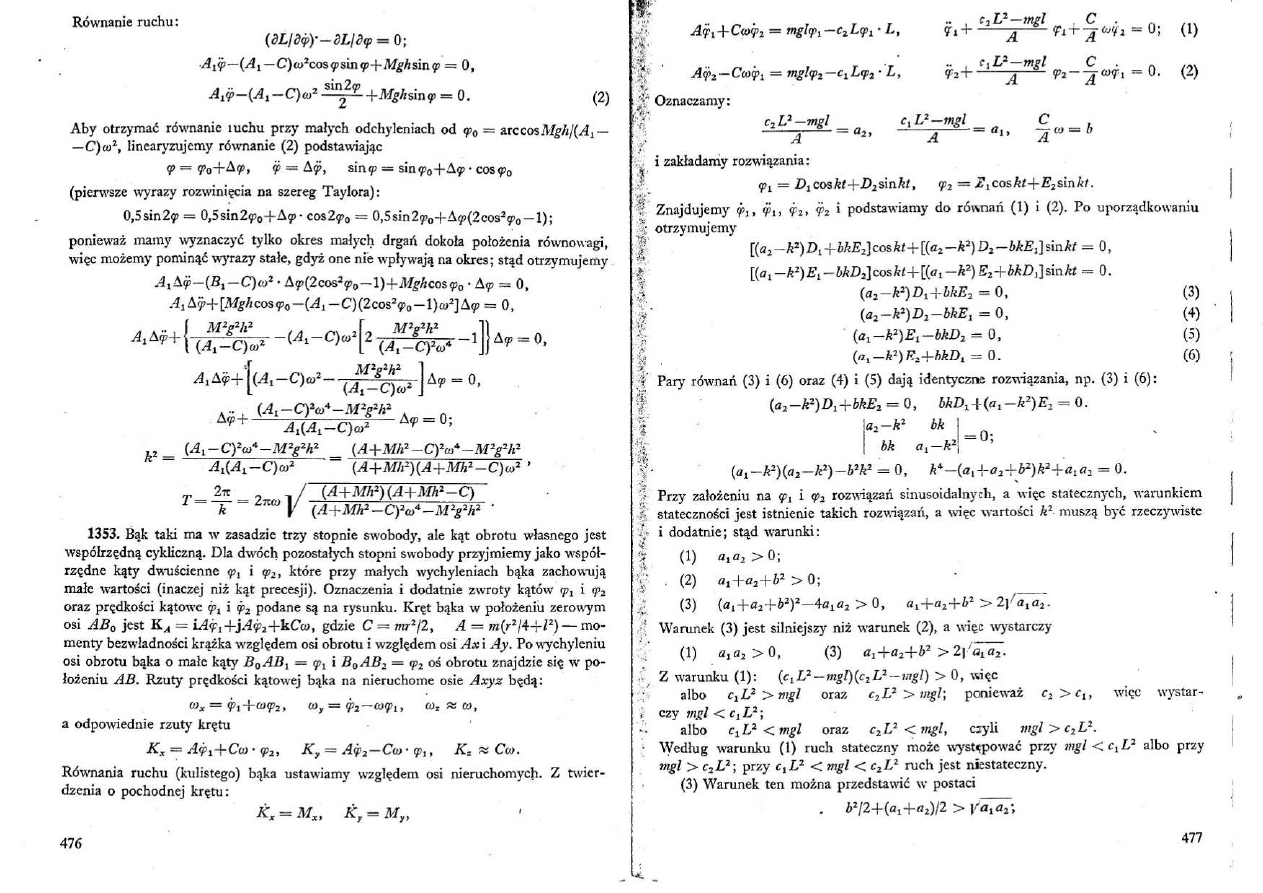 Równanie ruchu:
(∂L/∂φ̇)˙−∂L/∂φ = 0;
A₁φ̈−(A₁−C)ω²cos φ sin φ+Mgh sin φ = 0,
A₁φ̈−(A₁−C)ω² sin2φ/2 +Mgh sin φ = 0. (2)
Aby otrzymać równanie ruchu przy małych odchyleniach od φ₀ = arc cos Mgh/(A₁−
−C)ω², linearyzujemy równanie (2) podstawiając
φ = φ₀+Δφ, φ̈ = Δφ̈, sin φ = sin φ₀+Δφ · cos φ₀
(pierwsze wyrazy rozwinięcia na szereg Taylora):
0,5 sin 2φ = 0,5 sin 2φ₀+Δφ · cos 2φ₀ = 0,5 sin 2φ₀+Δφ(2cos²φ₀−1);
ponieważ mamy wyznaczyć tylko okres małych drgań dokoła położenia równowagi,
więc możemy pominąć wyrazy stałe, gdyż one nie wpływają na okres; stąd otrzymujemy
A₁Δφ̈−(B₁−C)ω² · Δφ(2cos²φ₀−1)+Mgh cos φ₀ · Δφ = 0,
A₁Δφ̈+[Mgh cos φ₀−(A₁−C)(2cos²φ₀−1)ω²]Δφ = 0,
A₁Δφ̈+{M²g²h²/(A₁−C)ω² −(A₁−C)ω²[2 M²g²h²/(A₁−C)²ω⁴ −1]}Δφ = 0,
A₁Δφ̈+[(A₁−C)ω²− M²g²h²/(A₁−C)ω²]Δφ = 0,
Δφ̈+ (A₁−C)²ω⁴−M²g²h²/A₁(A₁−C)ω² Δφ = 0;
k² = (A₁−C)²ω⁴−M²g²h²/A₁(A₁−C)ω² = (A+Mh²−C)²ω⁴−M²g²h²/(A+Mh²)(A+Mh²−C)ω² ,
T = 2π/k = 2πω √((A+Mh²)(A+Mh²−C)/(A+Mh²−C)²ω⁴−M²g²h²) .
1353. Bąk taki ma w zasadzie trzy stopnie swobody, ale kąt obrotu własnego jest
współrzędną cykliczną. Dla dwóch pozostałych stopni swobody przyjmiemy jako współ-
rzędne kąty dwuścienne φ₁ i φ₂, które przy małych wychyleniach bąka zachowują
małe wartości (inaczej niż kąt precesji). Oznaczenia i dodatnie zwroty kątów φ₁ i φ₂
oraz prędkości kątowe φ̇₁ i φ̇₂ podane są na rysunku. Kręt bąka w położeniu zerowym
osi AB₀ jest K_A = iAφ̇₁+jAφ̇₂+kCω, gdzie C = mr²/2, A = m(r²/4+l²) — mo-
menty bezwładności krążka względem osi obrotu i względem osi Ax i Ay. Po wychyleniu
osi obrotu bąka o małe kąty B₀AB₁ = φ₁ i B₀AB₂ = φ₂ oś obrotu znajdzie się w po-
łożeniu AB. Rzuty prędkości kątowej bąka na nieruchome osie Axyz będą:
ωₓ = φ̇₁+ωφ₂, ω_y = φ̇₂−ωφ₁, ω_z ≈ ω,
a odpowiednie rzuty krętu
Kₓ = Aφ̇₁+Cω · φ₂, K_y = Aφ̇₂−Cω · φ₁, K_z ≈ Cω.
Równania ruchu (kulistego) bąka ustawiamy względem osi nieruchomych. Z twier-
dzenia o pochodnej krętu:
K̇ₓ = Mₓ, K̇_y = M_y,
476
Aφ̈₁+Cωφ̇₂ = mglφ₁−c₂Lφ₁ · L, φ̈₁+ c₂L²−mgl/A φ₁+ C/A ωφ̇₂ = 0; (1)
Aφ̈₂−Cωφ̇₁ = mglφ₂−c₁Lφ₂ · L, φ̈₂+ c₁L²−mgl/A φ₂− C/A ωφ̇₁ = 0. (2)
Oznaczamy:
c₂L²−mgl/A = a₂, c₁L²−mgl/A = a₁, C/A ω = b
i zakładamy rozwiązania:
φ₁ = D₁cos kt+D₂sin kt, φ₂ = E₁cos kt+E₂sin kt.
Znajdujemy φ̇₁, φ̈₁, φ̇₂, φ̈₂ i podstawiamy do równań (1) i (2). Po uporządkowaniu
otrzymujemy
[(a₂−k²)D₁+bkE₂]cos kt+[(a₂−k²)D₂−bkE₁]sin kt = 0,
[(a₁−k²)E₁−bkD₂]cos kt+[(a₁−k²)E₂+bkD₁]sin kt = 0.
(a₂−k²)D₁+bkE₂ = 0, (3)
(a₂−k²)D₂−bkE₁ = 0, (4)
(a₁−k²)E₁−bkD₂ = 0, (5)
(a₁−k²)E₂+bkD₁ = 0. (6)
Pary równań (3) i (6) oraz (4) i (5) dają identyczne rozwiązania, np. (3) i (6):
(a₂−k²)D₁+bkE₂ = 0, bkD₁+(a₁−k²)E₂ = 0.
|a₂−k² bk|
|bk a₁−k²| = 0;
(a₁−k²)(a₂−k²)−b²k² = 0, k⁴−(a₁+a₂+b²)k²+a₁a₂ = 0.
Przy założeniu na φ₁ i φ₂ rozwiązań sinusoidalnych, a więc statecznych, warunkiem
stateczności jest istnienie takich rozwiązań, a więc wartości k² muszą być rzeczywiste
i dodatnie; stąd warunki:
(1) a₁a₂ > 0;
(2) a₁+a₂+b² > 0;
(3) (a₁+a₂+b²)²−4a₁a₂ > 0, a₁+a₂+b² > 2√a₁a₂.
Warunek (3) jest silniejszy niż warunek (2), a więc wystarczy
(1) a₁a₂ > 0, (3) a₁+a₂+b² > 2√a₁a₂.
Z warunku (1): (c₁L²−mgl)(c₂L²−mgl) > 0, więc
albo c₁L² > mgl oraz c₂L² > mgl; ponieważ c₂ > c₁, więc wystar-
czy mgl < c₁L²;
albo c₁L² < mgl oraz c₂L² < mgl, czyli mgl > c₂L².
Według warunku (1) ruch stateczny może występować przy mgl < c₁L² albo przy
mgl > c₂L²; przy c₁L² < mgl < c₂L² ruch jest niestateczny.
(3) Warunek ten można przedstawić w postaci
b²/2+(a₁+a₂)/2 > √a₁a₂;
477